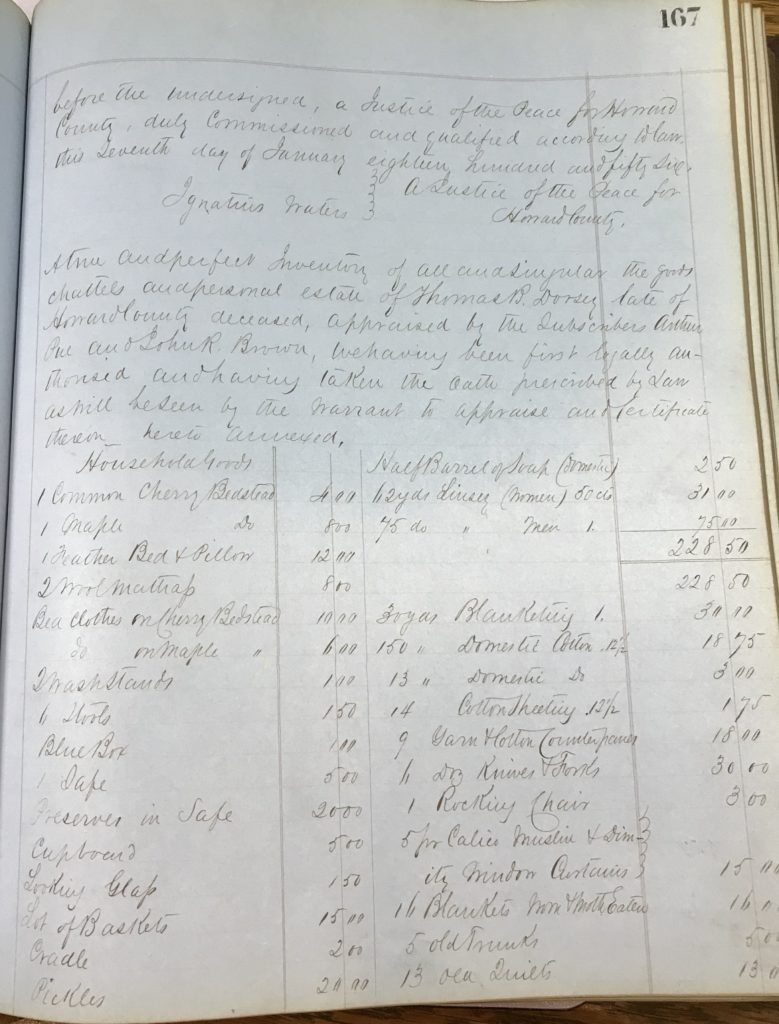 167
before the undersigned, a Justice of the Peace for Howard
County, duly Commissioned and qualified according to law
this Seventh day of January eighteen hundred and fifty Six.
Ignatius Waters } A Justice of the Peace for
Howard County.
A true and perfect Inventory of all and singular the goods
chattels and personal estate of Thomas B. Dorsey late of
Howard County deceased, appraised by the Subscribers Arthur
Pue and John R. Brown, we having been first legally au-
thorised and having taken the oath prescribed by Law
as will be seen by the warrant to appraise and Certificate
thereon hereto annexed.
Household Goods
1 Common Cherry Bedstead 4 00
1 Maple Do 8 00
1 Feather Bed & Pillow 12 00
2 Wool Mattrass 8 00
Bed clothes on Cherry Bedstead 10 00
do on Maple " 6 00
2 Wash Stands 1 00
6 Stools 1 50
Blue Box 1 00
1 Safe 5 00
Preserves in Safe 20 00
Cupboard 5 00
Looking Glass 1 50
Lot of Baskets 15 00
Cradle 2 00
Pickles 20 00
Half Barrel of Soap (Domestic) 2 50
62 yds Linsey (Women) 50 cts 31 00
75 do " Men 1. 75 00
228 50
228 50
30 yds Blanketing 1. 30 00
150 " Domestic Cotton .12 1/2 18 75
13 " Domestic Do 3 00
14 Cotton Sheeting .12 1/2 1 75
9 Yarn & Cotton Counterpanes 18 00
6 Doz Knives & Forks 30 00
1 Rocking Chair 3 00
5 pr Calico Muslin & Dim- }
ity Window Curtains } 15 00
16 Blankets Worn & Moth Eaten 16 00
5 old Trunks 5 00
13 old Quilts 13 0